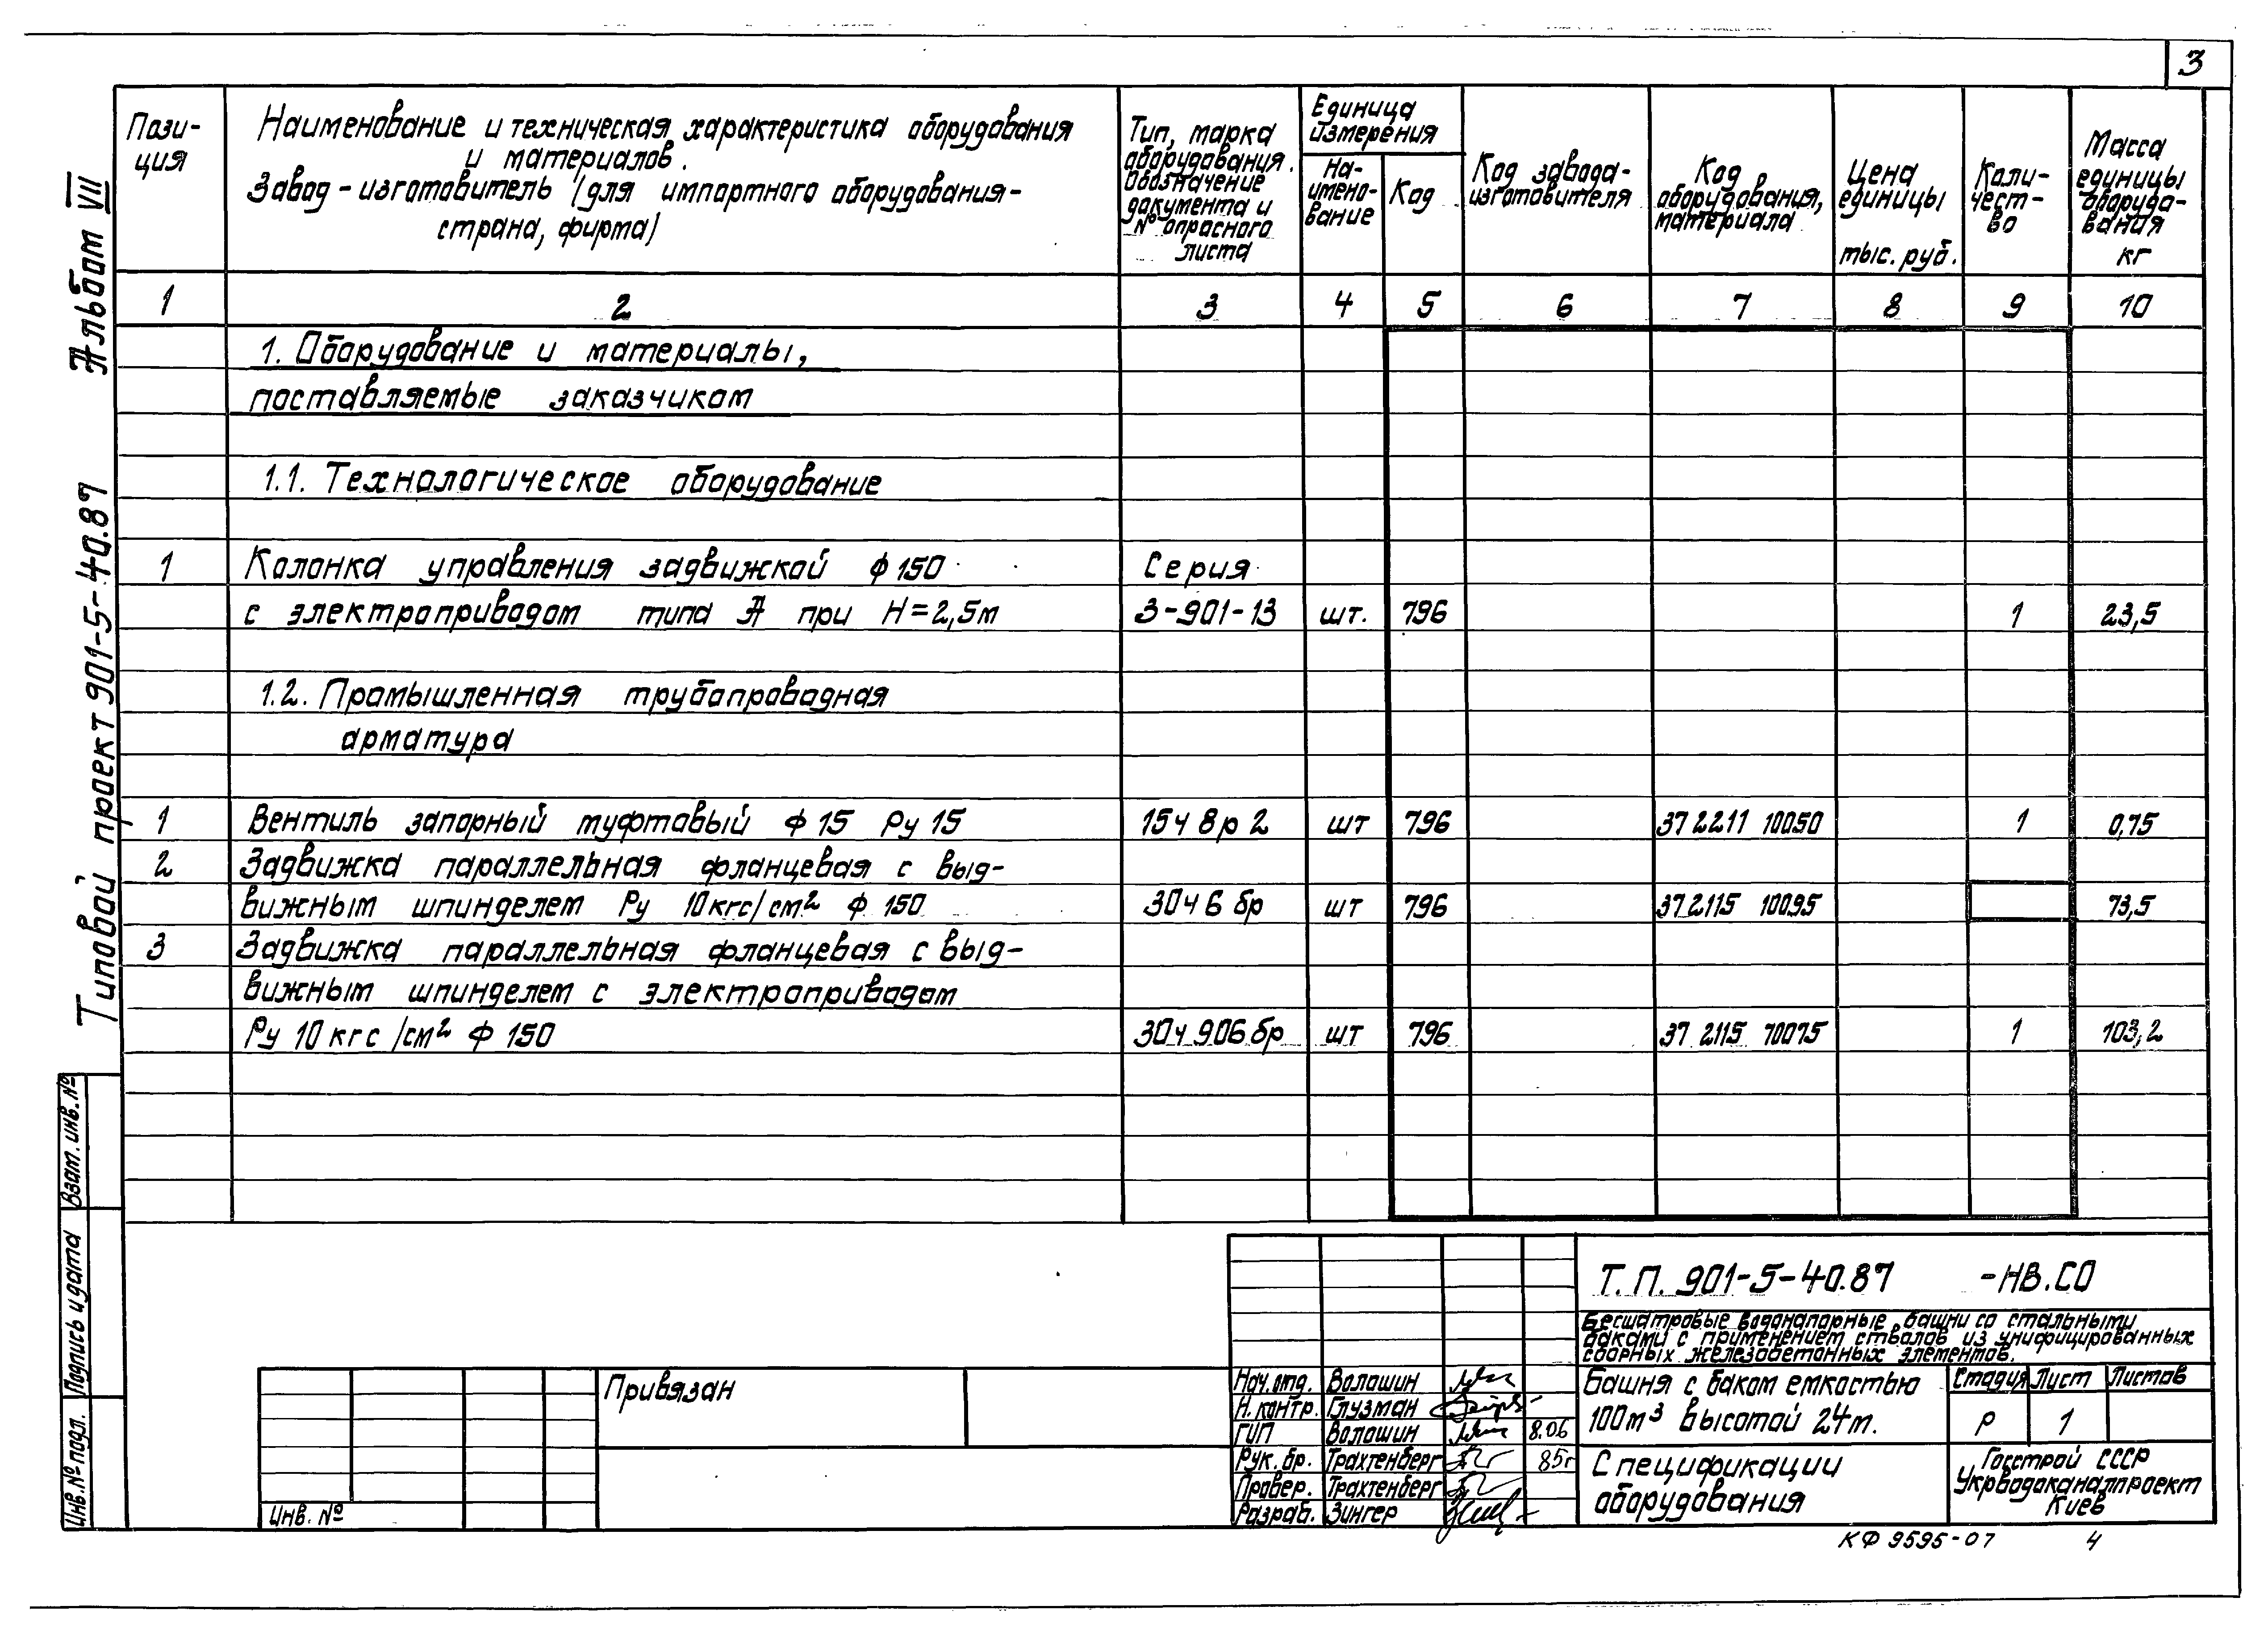 3
Альбом VII
Типовой проект 901-5-40.87
Пози-
ция
Наименование и техническая характеристика оборудования
и материалов.
Завод-изготовитель (для импортного оборудования-
страна, фирма)
Тип, марка
оборудования.
Обозначение
документа и
№ опросного
листа
Единица
измерения
На-
имено-
вание
Код
Код завода-
изготовителя
Код
оборудования,
материала
Цена
единицы
тыс. руб.
Коли-
чест-
во
Масса
единицы
оборудо-
вания
кг
1 2 3 4 5 6 7 8 9 10
1. Оборудование и материалы,
поставляемые заказчиком
1.1. Технологическое оборудование
1 Колонка управления задвижкой ф 150 Серия
с электроприводом типа А при H=2,5м 3-901-13 шт. 796 1 23,5
1.2. Промышленная трубопроводная
арматура
1 Вентиль запорный муфтовый ф 15 Ру 15 15ч 8р 2 шт 796 37 2211 10050 1 0,75
2 Задвижка параллельная фланцевая с выд-
вижным шпинделем Ру 10кгс/см² ф 150 30ч 6 бр шт 796 37 2115 10095 73,5
3 Задвижка параллельная фланцевая с выд-
вижным шпинделем с электроприводом
Ру 10 кгс/см² ф 150 30ч 906 бр шт 796 37 2115 70075 1 103,2
Взам. инв. №
Подпись и дата
Инв. № подл.
Привязан
Инв. №
Т.П. 901-5-40.87 -НВ.СО
Бесшатровые водонапорные башни со стальными
баками с применением стволов из унифицированных
сборных железобетонных элементов.
Нач. отд. Волошин
Н. контр. Глузман
ГИП Волошин 8.06
Рук. бр. Трахтенберг 85г
Провер. Трахтенберг
Разраб. Зингер
Башня с баком емкостью
100м³ высотой 24м.
Стадия Лист Листов
Р 1
Спецификации
оборудования
Госстрой СССР
Укрводоканалпроект
Киев
КФ 9595-07 4